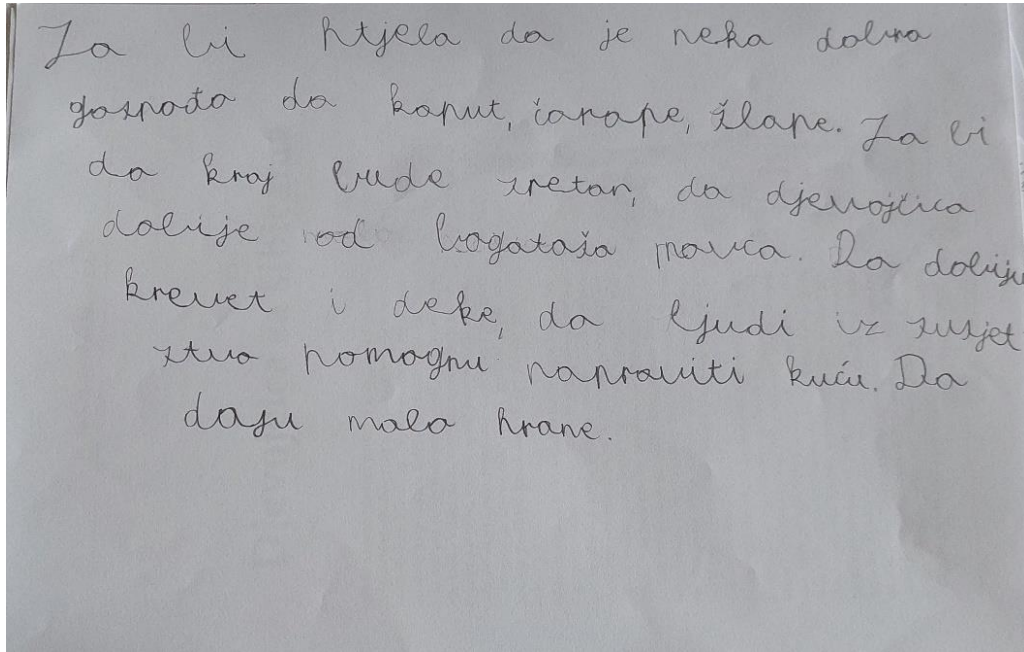 Ja bi htjela da je neka dobra
gospođa da kaput, čarape, šlape. Ja bi
da kraj bude sretan, da djevojčica
dobije od bogataša novca. Da dobiju
krevet i deke, da ljudi iz susjet
stvo pomognu napraviti kuću. Da
daju malo hrane.